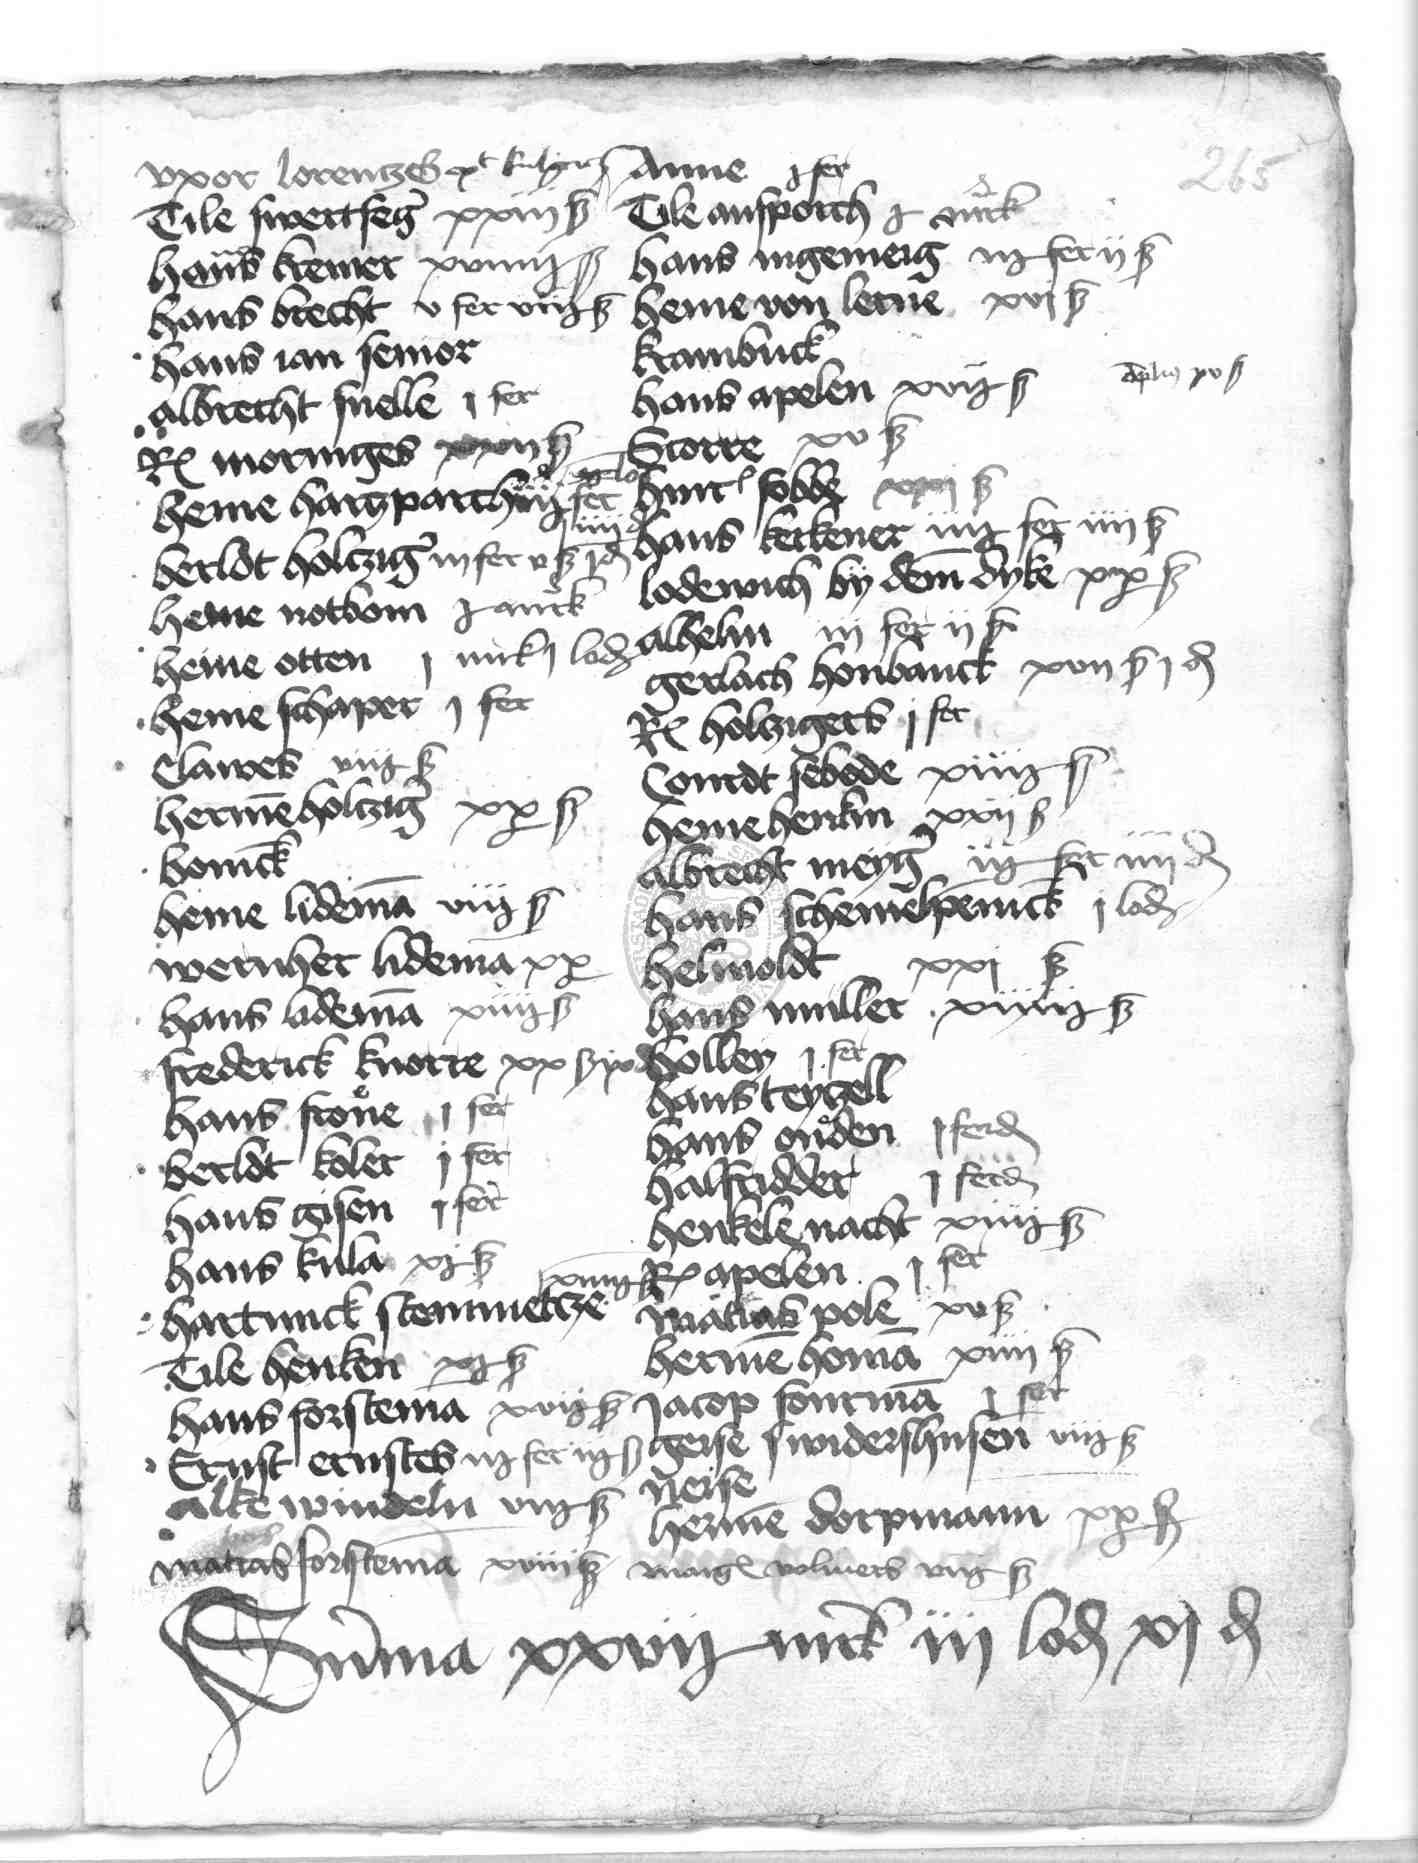 265
vxor lorentzes
Tile swertfeg xxiii ß
hans kremer xviiij ß
hans brecht v fer viij ß
hans ian senior
albrecht snelle j fer
Rel moringes xxvii ß
heine hartzparth iiij fer
berldt holtzig iij fer v ß j d
heine notbom j mrck
heine otten j mrk j lod
heine schaper j fer
Clawes viij ß
hermē holtzig xx ß
bonick
heine lidemā viij ß
wernher lidemā xx
hans lidemā xiiij ß
frederick knorre xx ß
hans frone j fer
berldt koler j fer
hans gisen j fer
hans kula xj ß
hartunck stemmetze xiiij ß
Tile henken xj ß
hans forstemā xvij ß
Ernst ernstes iij fer iij ß
alke windeln viij ß
matias forstemā xviii ß
Anne j fer
Tile ansporch j mrck
hans ingemeig iij fer ij ß
heine von lerne xvj ß
krambuck
hans apelen xvij ß xv ß
Storre xv ß
hinr sobb xxj ß
hans kerkener iiij fer iiij ß
lodewich by dem dyke xx ß
alhelm iij fer ij ß
gerlach honbanck xvii ß j d
Rel holtzigers j fer
Conrdt sebode xiiij ß
heine henkin xxij ß
albrecht meyg iij fer iiij d
hans schemelpenick j lod
helmoldt xxj ß
hans muller xiiij ß
holley j fer
hans teytzell
hans onden j ferd
halfridder j ferd
henkele nacht xiiij ß
Rel apelen j fer
matias pole xv ß
hermē homā xiiii ß
Jacop fontmā j fer
geise swidershusen viij ß
neise
hermē dorpmann xx ß
volmers viij ß
Sūma xxvij mrck iij lod xj d